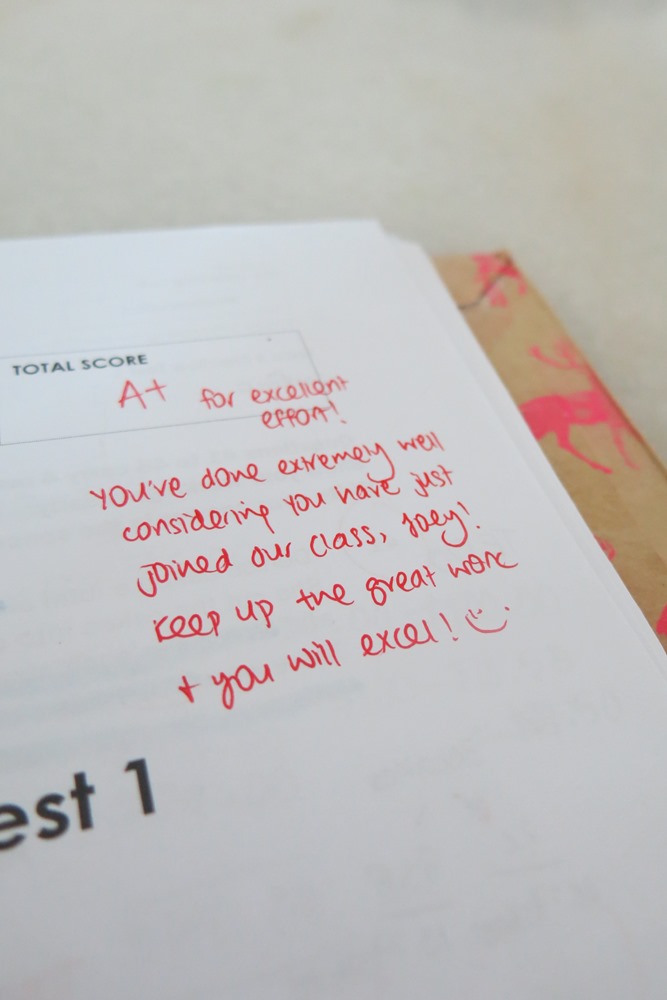 TOTAL SCORE
A+ for excellent
effort!
You've done extremely well
considering you have just
joined our class, Joey!
Keep up the great work
+ you will excel! :)
est 1